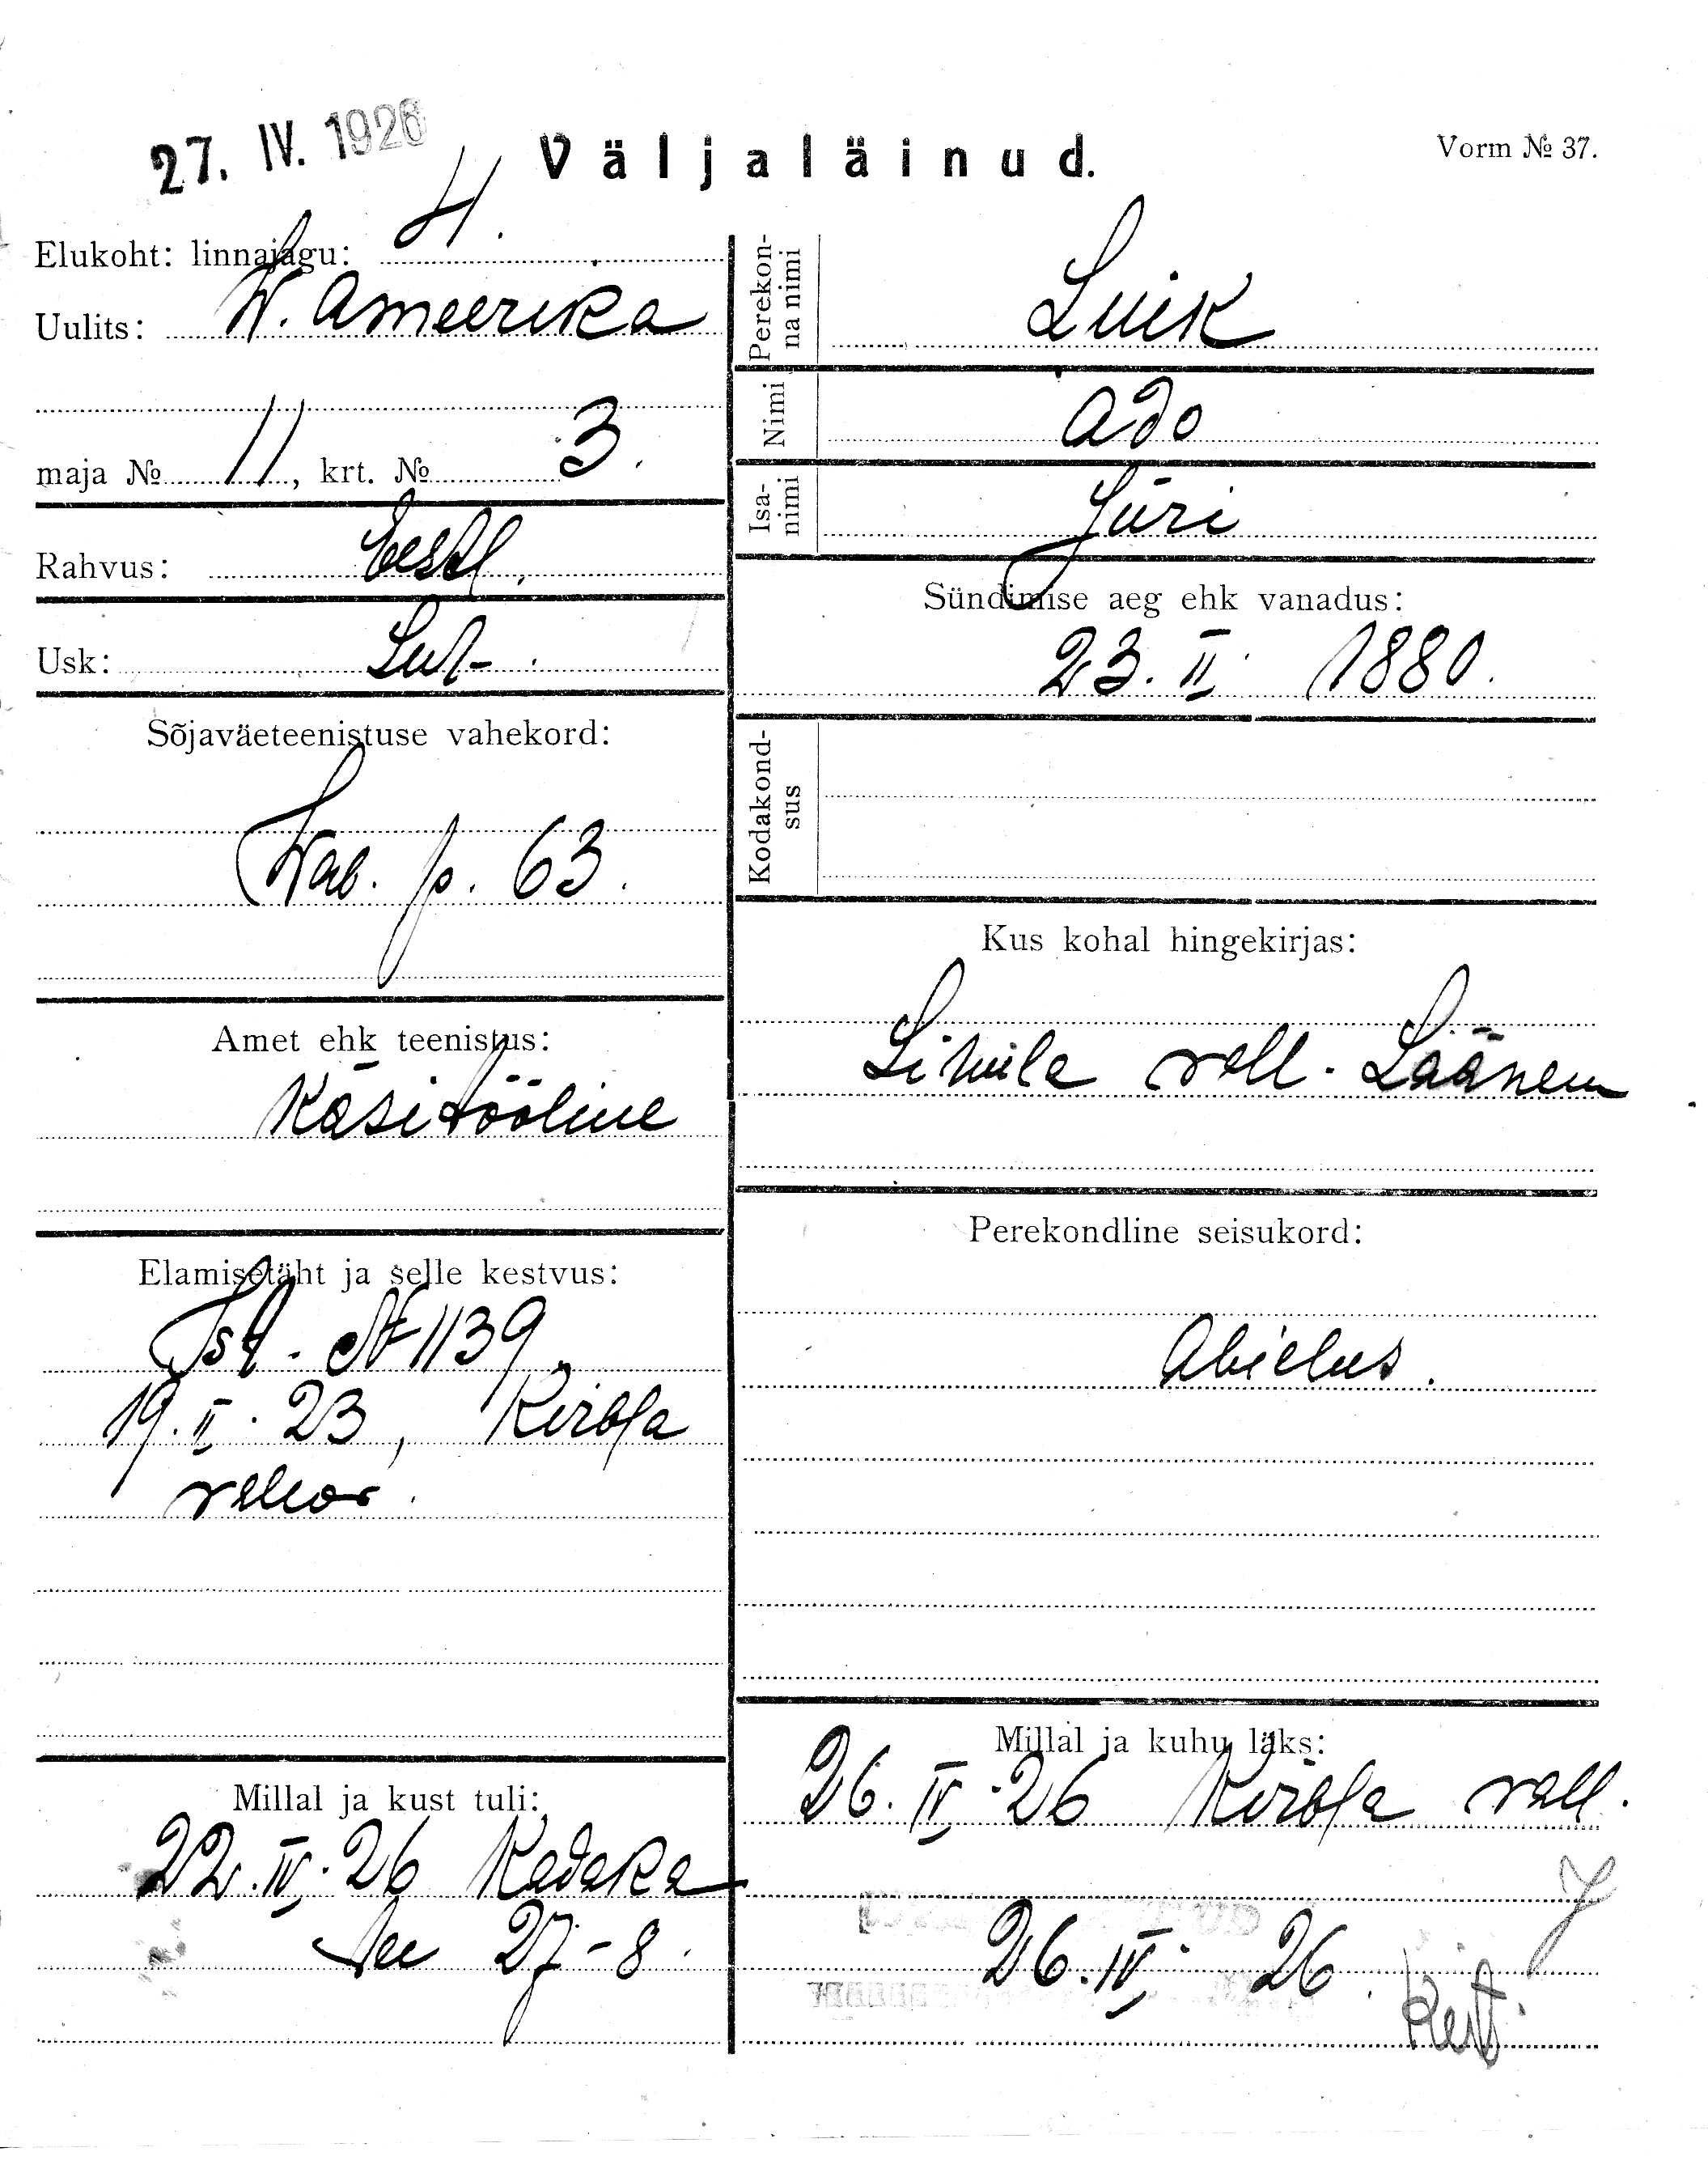 27. IV. 1926
Väljaläinud.
Vorm № 37.
Elukoht: linnajagu: 4.
Uulits: W. Ameerika
maja № 11, krt. № 3.
Rahvus: Eestl.
Usk: Lut.
Sõjaväeteenistuse vahekord:
Wab. p. 63.
Amet ehk teenistus:
Käsitööline
Elamisetäht ja selle kestvus:
Tst. № 1139
19. II. 23, Kirbla
Millal ja kust tuli:
22. IV. 26 Kadaka
tee 27-8.
Perekonna nimi
Luik
Nimi
Ado
Isanimi
Jüri
Sündimise aeg ehk vanadus:
23. II. 1880.
Kodakondsus
Kus kohal hingekirjas:
Lihula vall. Läänem
Perekondline seisukord:
Abielus.
Millal ja kuhu läks:
26. IV. 26 Kirbla vall.
26. IV. 26.